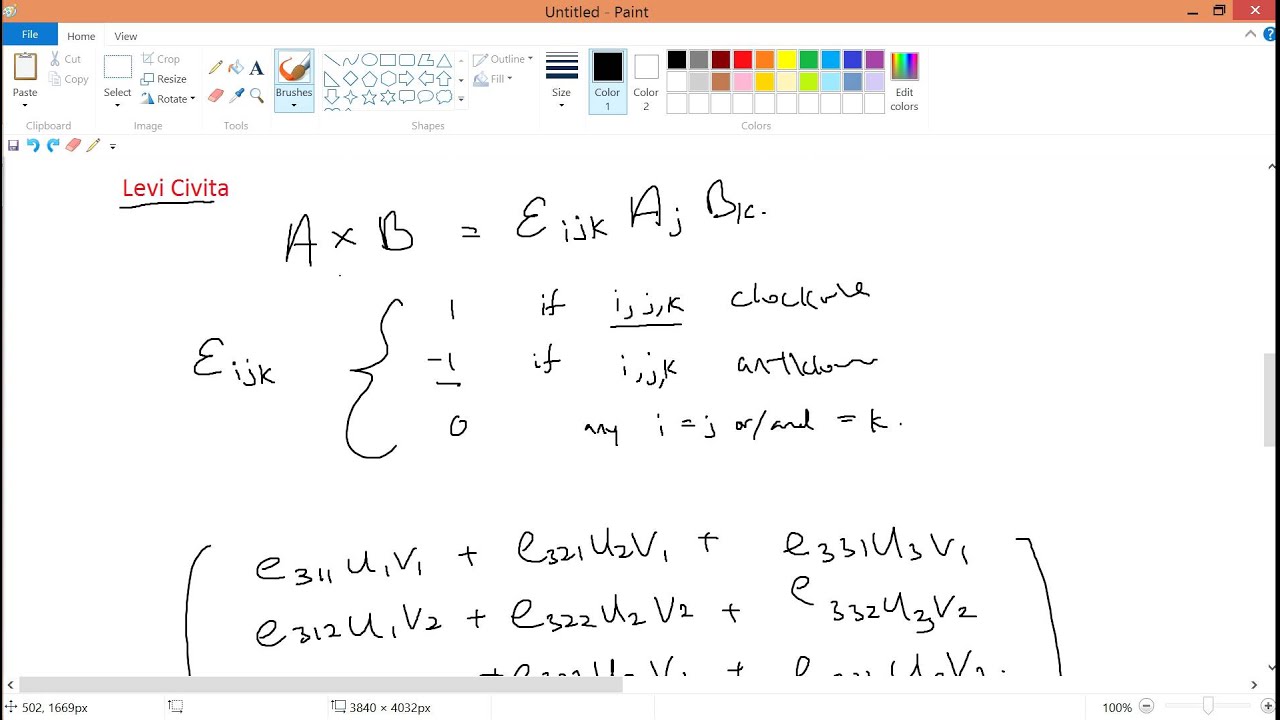 Untitled - Paint
File Home View
Paste Cut Copy Clipboard
Select Crop Resize Rotate Image
A Tools
Brushes
Outline Fill Shapes
Size
Color 1 Color 2 Edit colors Colors
Levi Civita
A × B = Ɛijk Aj Bk.
Ɛijk
1 if i,j,k clockwise
-1 if i,j,k
0 any i = j or/and = k.
e311u1v1 + e321u2v1 + e331u3v1
e312u1v2 + e322u2v2 + e332u3v2
502, 1669px 3840 × 4032px 100%